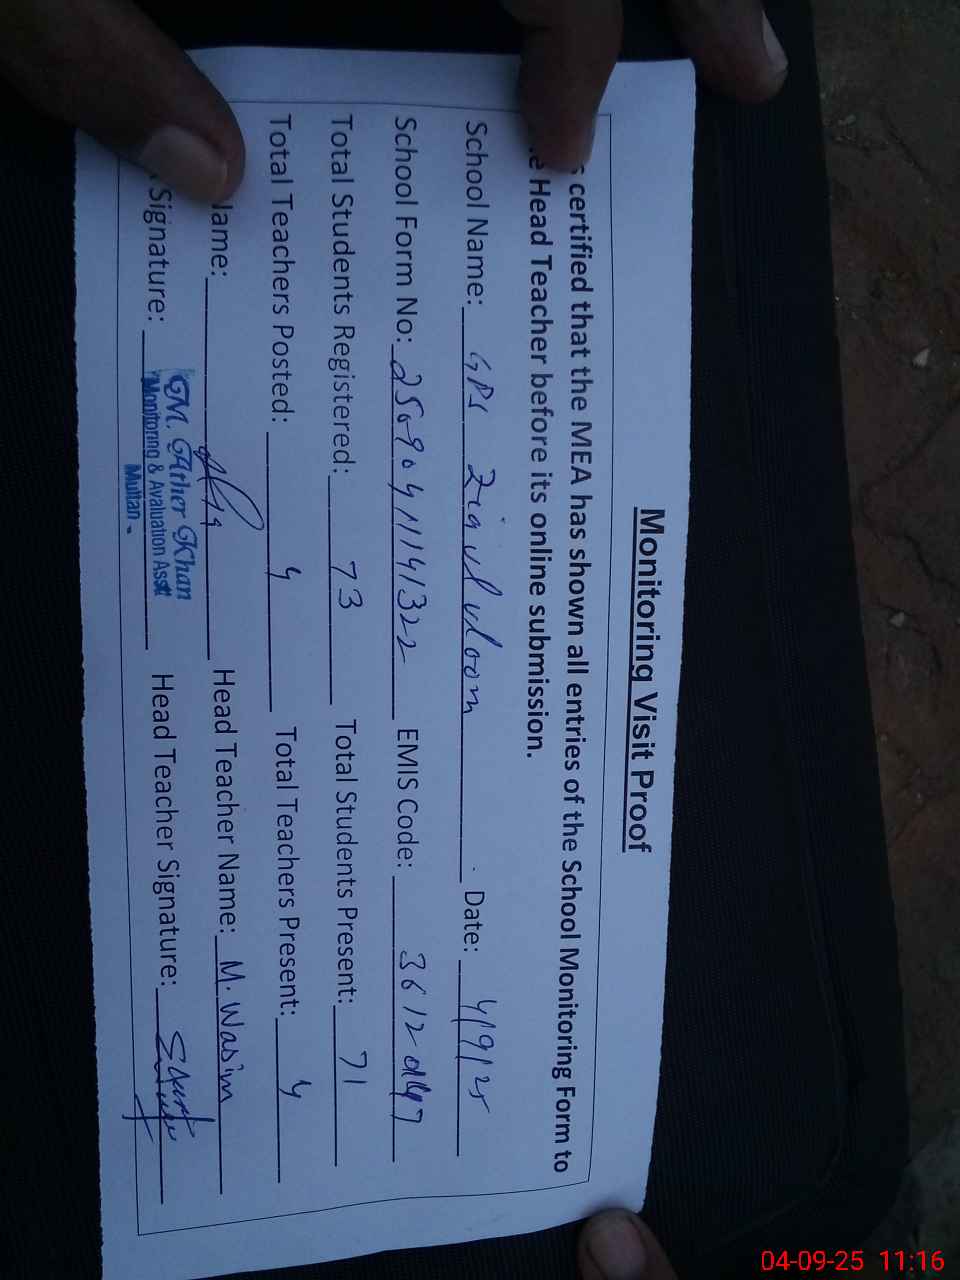 Monitoring Visit Proof
certified that the MEA has shown all entries of the School Monitoring Form to
Head Teacher before its online submission.
School Name: GPS Ziaul uloom Date: 4/9/25
School Form No: EMIS Code: 36120147
Total Students Registered: 73 Total Students Present: 71
Total Teachers Posted: 4 Total Teachers Present: 4
Name: Head Teacher Name: M. Wasim
Signature: Head Teacher Signature:
M. Ather Khan
Monitoring & Avaluation Asstt
Multan
04-09-25 11:16